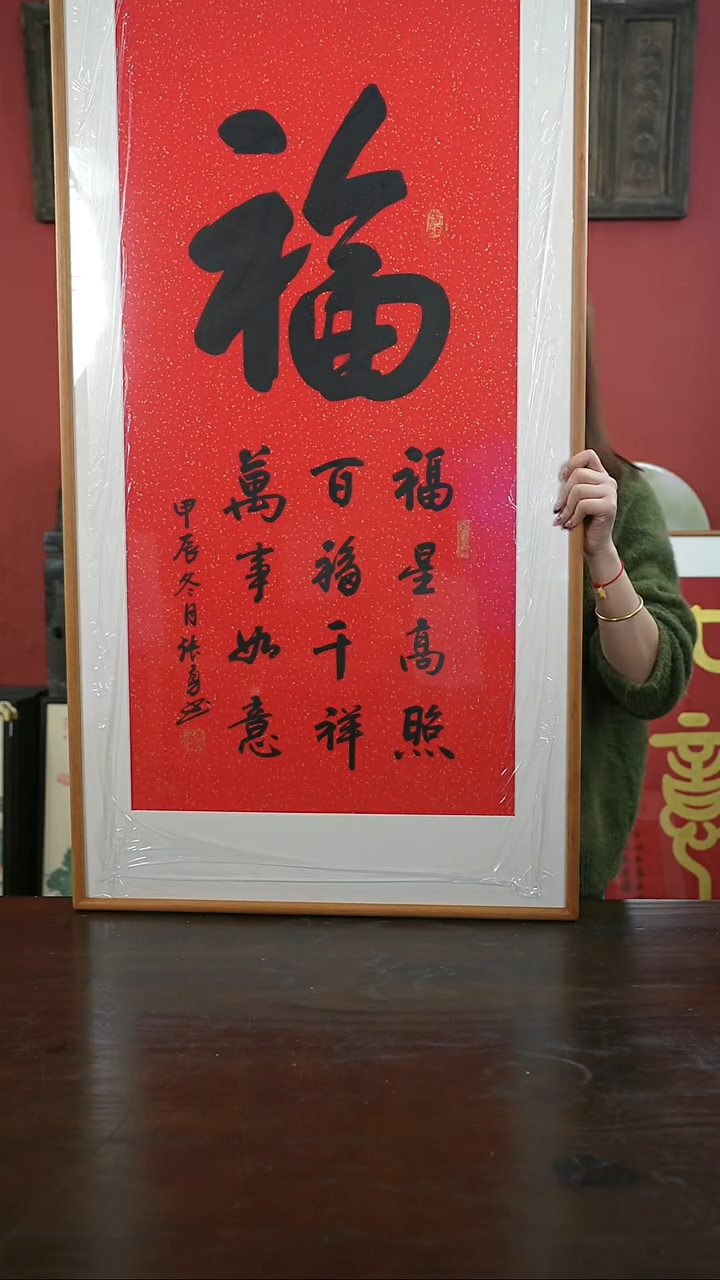 福
福星高照
百福千祥
萬事如意
甲辰冬月張勇書
意